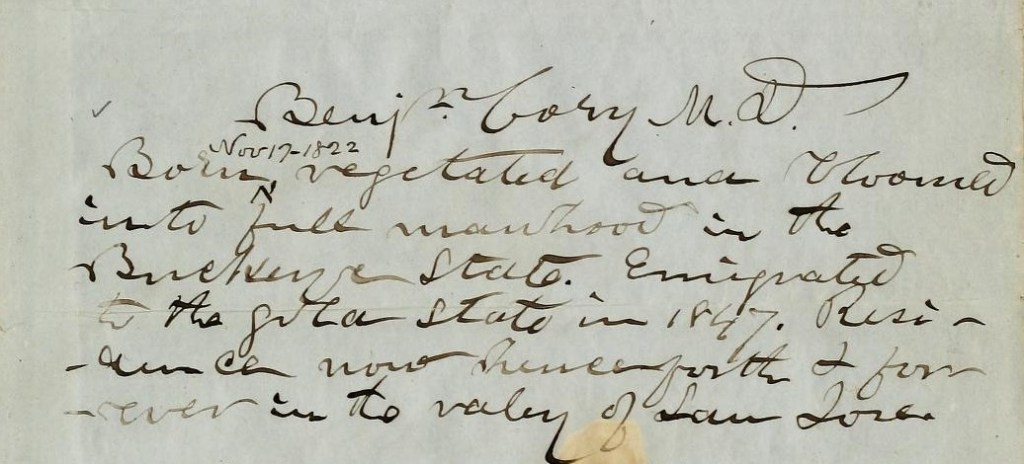 Benjn. Cory M.D.
Nov 17-1822
Born ^ vegetated and bloomed
into full manhood in the
Buckeye State. Emigrated
to the gold State in 1847. Resi-
-dence now henceforth & for-
-ever in the valey of San Jose.